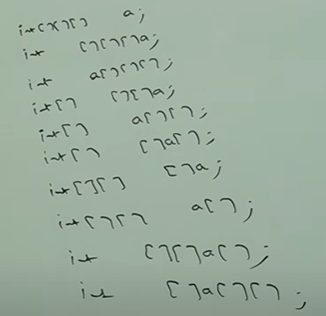 int[][][] a;
int [][][]a;
int a[][][];
int[] [][]a;
int[] a[][];
int[] []a[];
int[][] []a;
int[][] a[];
int [][]a[];
int []a[][];